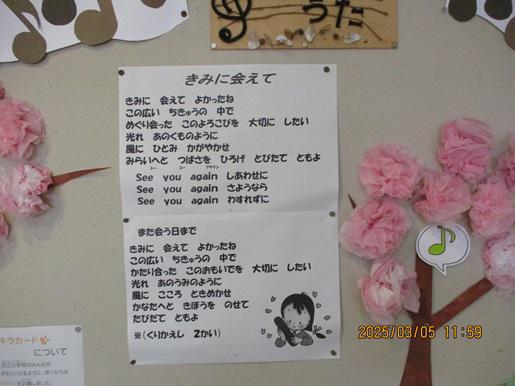 うた
きみに会えて
きみに 会えて よかったね
この広い ちきゅうの 中で
めぐり会った このよろこびを 大切に したい
光れ あのくものように
風に ひとみ かがやかせ
みらいへと つばさを ひろげ とびたて ともよ
See you again しあわせに
See you again さようなら
See you again わすれずに
また会う日まで
きみに 会えて よかったね
この広い ちきゅうの 中で
かたり合った このおもいでを 大切に したい
光れ あのうみのように
風に こころ ときめかせ
かなたへと きぼうを のせて
たびだて ともよ
※(くりかえし 2かい)
キラカード
について
2025/03/05 11:59